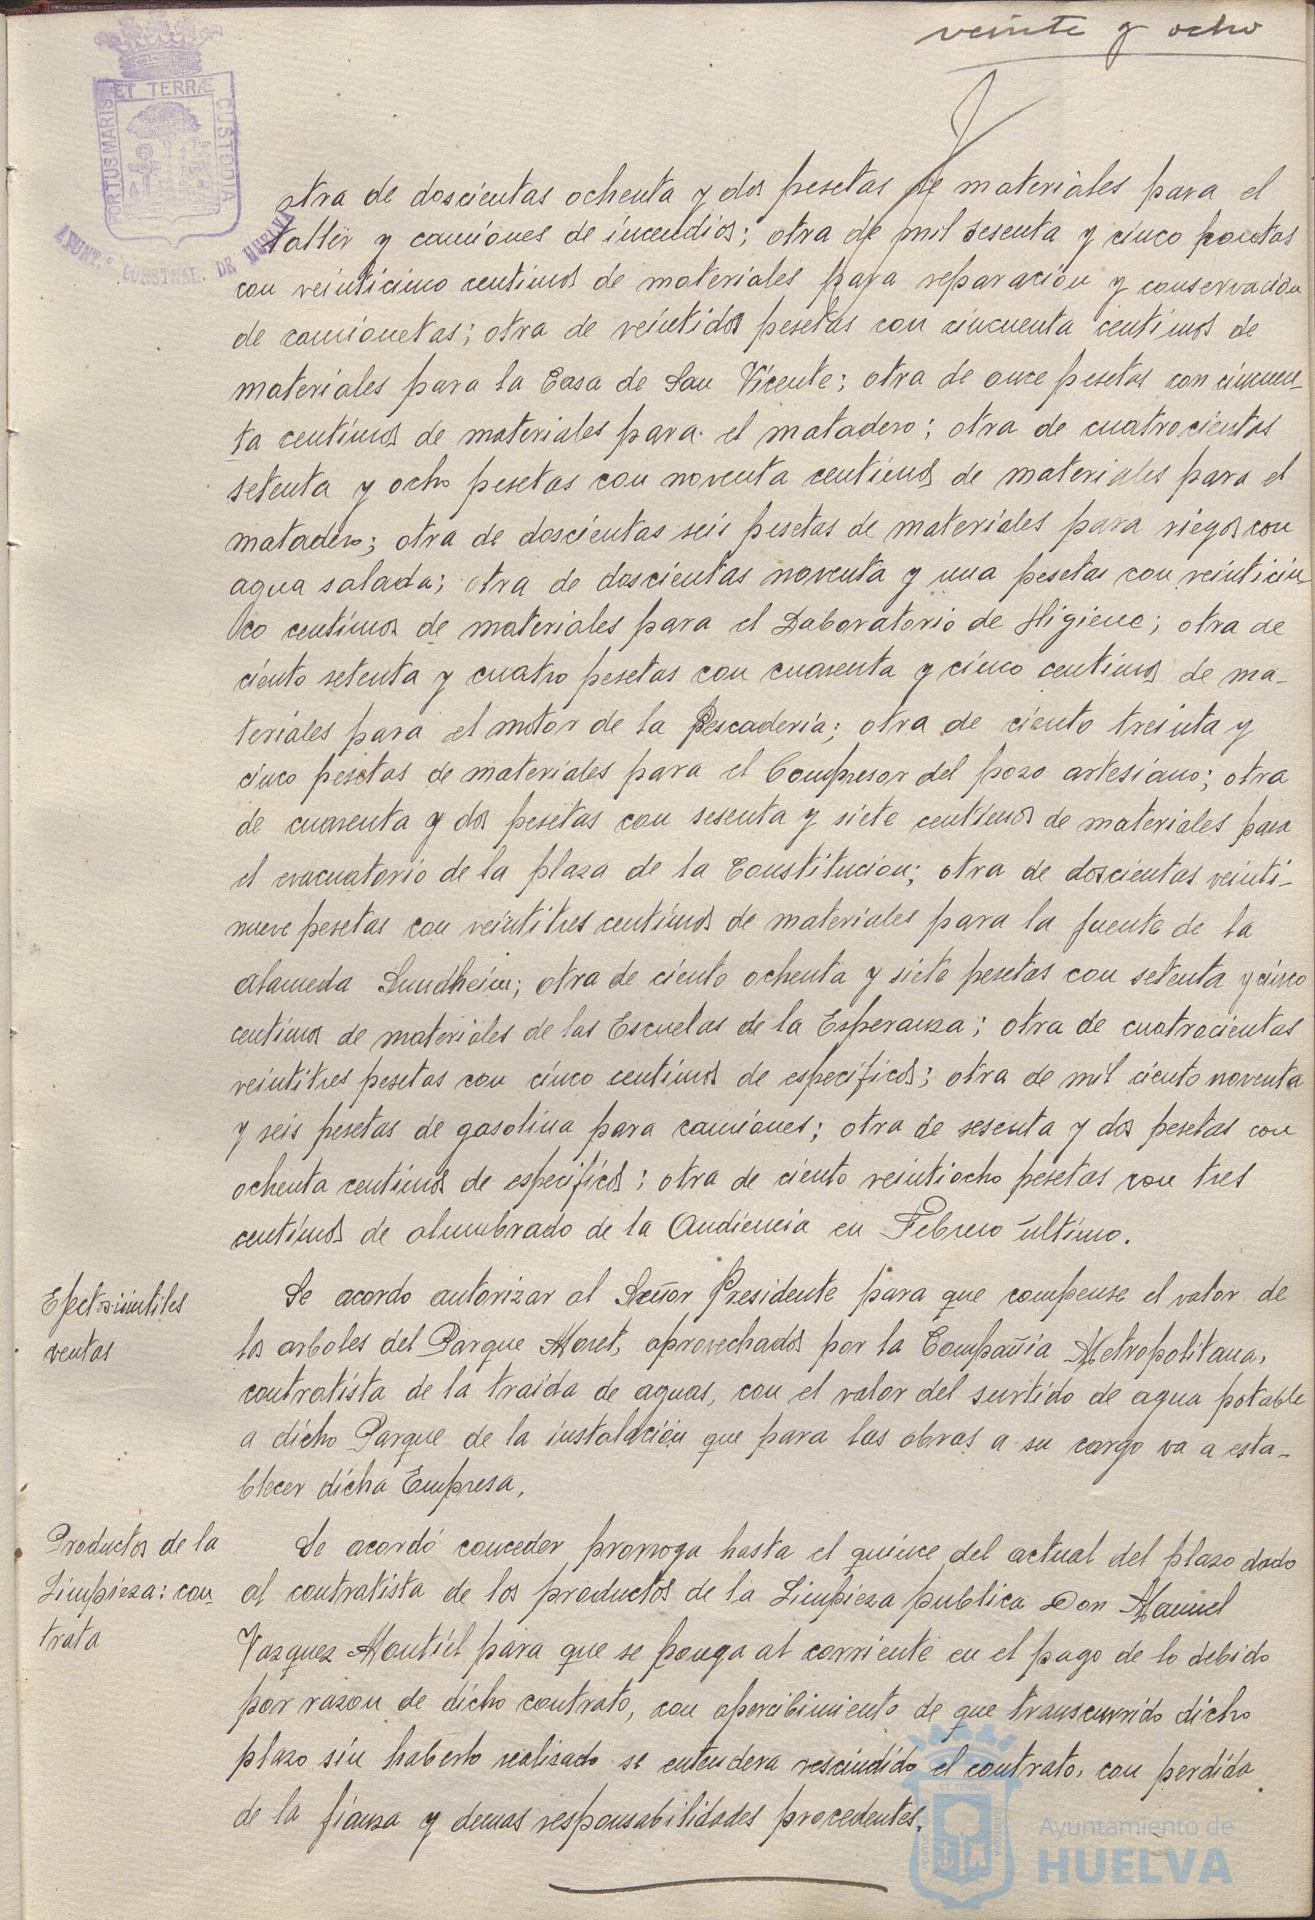 veinte y ocho
PORTUS MARIS ET TERRÆ CUSTODIA
AYUNT.º CONSTNAL. DE HUELVA
otra de doscientas ochenta y dos pesetas de materiales para el
taller y camiones de incendios; otra de mil sesenta y cinco pesetas
con veinticinco centimos de materiales para reparación y conservación
de camionetas; otra de veintidos pesetas con cincuenta centimos de
materiales para la Casa de San Vicente; otra de once pesetas con cincuen-
ta centimos de materiales para el matadero; otra de cuatrocientas
setenta y ocho pesetas con noventa centimos de materiales para el
matadero; otra de doscientas seis pesetas de materiales para riegos con
agua salada; otra de doscientas noventa y una pesetas con veinticin
co centimos de materiales para el Laboratorio de Higiene; otra de
ciento setenta y cuatro pesetas con cuarenta y cinco centimos de ma-
teriales para el motor de la Pescaderia; otra de ciento treinta y
cinco pesetas de materiales para el Compresor del pozo artesiano; otra
de cuarenta y dos pesetas con sesenta y siete centimos de materiales para
el evacuatorio de la plaza de la Constitucion; otra de doscientas veinti-
nueve pesetas con veintitres centimos de materiales para la fuente de la
alameda Sundheim; otra de ciento ochenta y siete pesetas con setenta y cinco
centimos de materiales de las Escuelas de la Esperanza; otra de cuatrocientas
veintitres pesetas con cinco centimos de especificos; otra de mil ciento noventa
y seis pesetas de gasolina para camiones; otra de sesenta y dos pesetas con
ochenta centimos de especificos; otra de ciento veintiocho pesetas con tres
centimos de alumbrado de la Audiencia en Febrero último.
Efectos inutiles
ventas
Se acordo autorizar al Señor Presidente para que compense el valor de
los arboles del Parque Moret, aprovechados por la Compañia Metropolitana,
contratista de la traida de aguas, con el valor del surtido de agua potable
a dicho Parque de la instalación que para las obras a su cargo va a esta-
blecer dicha Empresa.
Productos de la
Limpieza: con-
trata
Se acordó conceder prorroga hasta el quince del actual del plazo dado
al contratista de los productos de la Limpieza publica Don Manuel
Vazquez Montiel para que se ponga al corriente en el pago de lo debido
por razon de dicho contrato, con apercibimiento de que transcurrido dicho
plazo sin haberlo realizado se entendera rescindido el contrato, con perdida
de la fianza y demas responsabilidades procedentes.
Ayuntamiento de
HUELVA